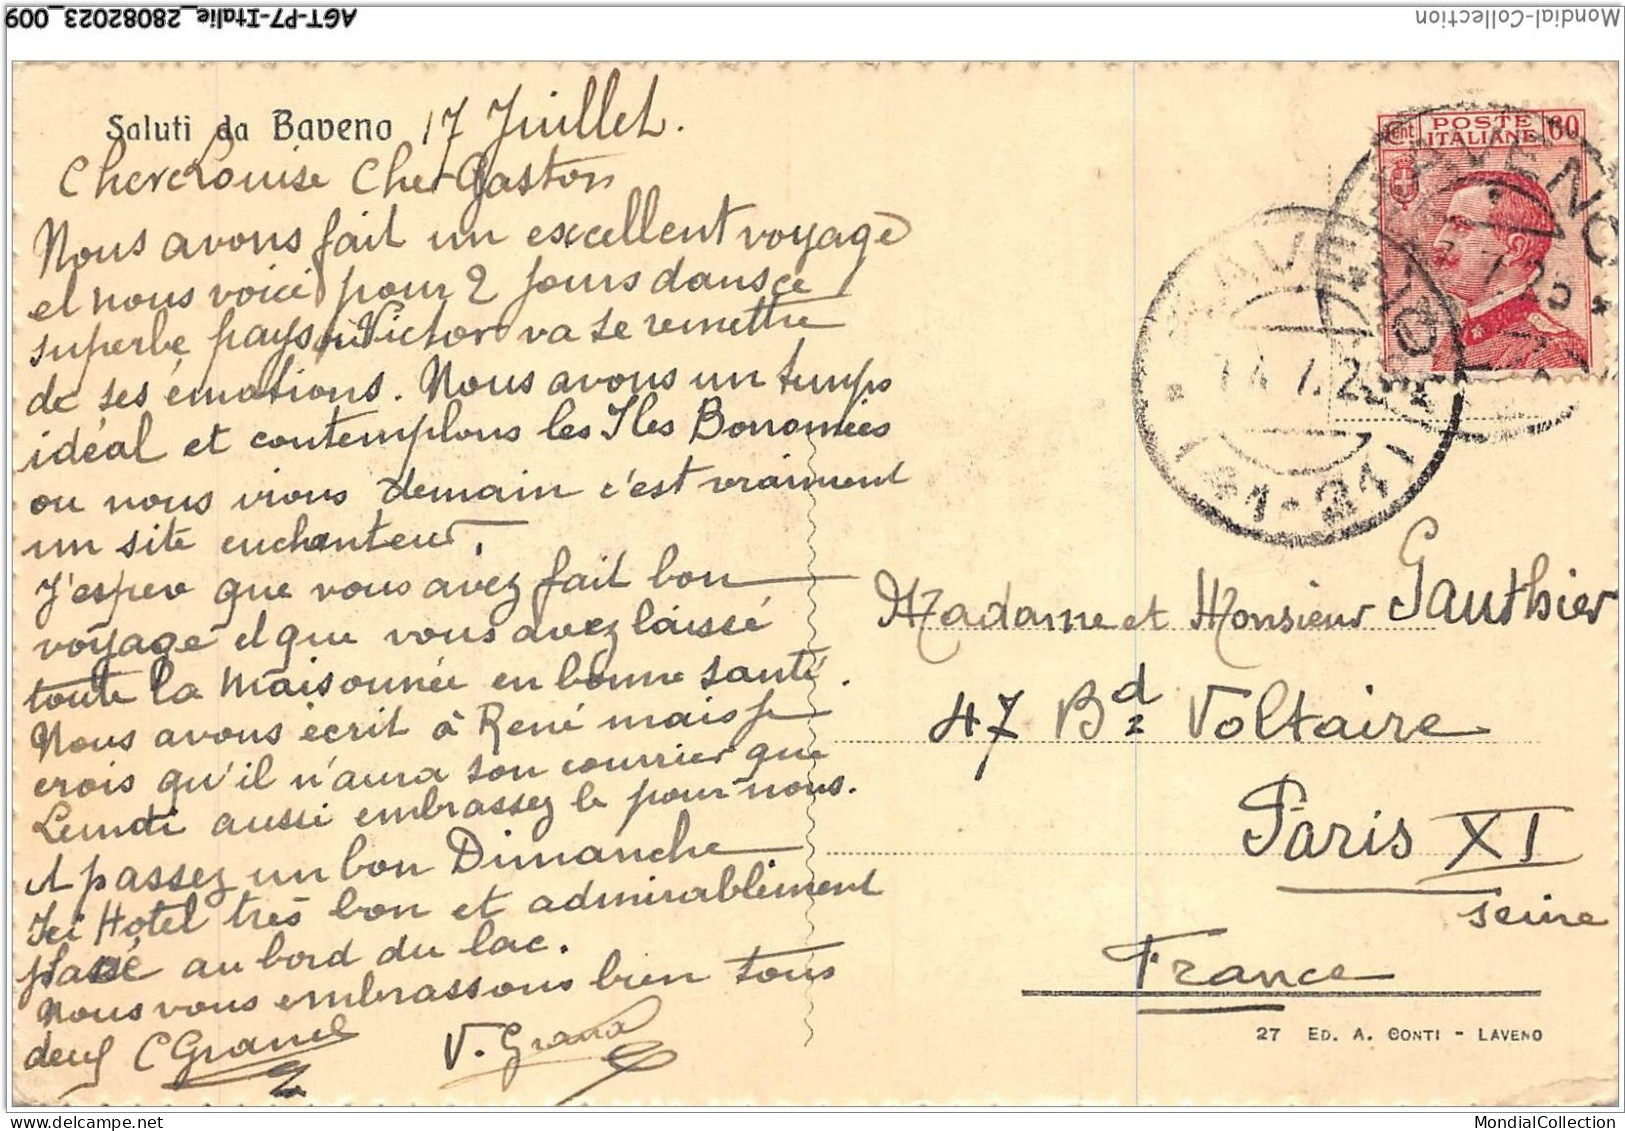 AGT-P7-Italie_28082023_009
Mondial-Collection
Saluti da Baveno 17 Juillet.
Chere Louise Cher Gaston
Nous avons fait un excellent voyage
et nous voici pour 2 jours dans ce
superbe pays où Victor va se remettre
de ses émotions. Nous avons un temps
idéal et contemplons les Iles Borromées
ou nous irons demain c'est vraiment
un site enchanteur.
J'espere que vous avez fait bon
voyage et que vous avez laissé
toute la maisonnée en bonne santé.
Nous avons écrit à René mais je
crois qu'il n'aura son courrier que
Lundi aussi embrassez le pour nous.
et passez un bon Dimanche
Ici Hotel très bon et admirablement
placé au bord du lac.
Nous vous embrassons bien tous
deux
POSTE ITALIANE
Cent 60
LAVENO
(21-21)
Madame et Monsieur Gauthier
47 Bd Voltaire
Paris XI
Seine
France
27 ED. A. CONTI - LAVENO
MondialCollection